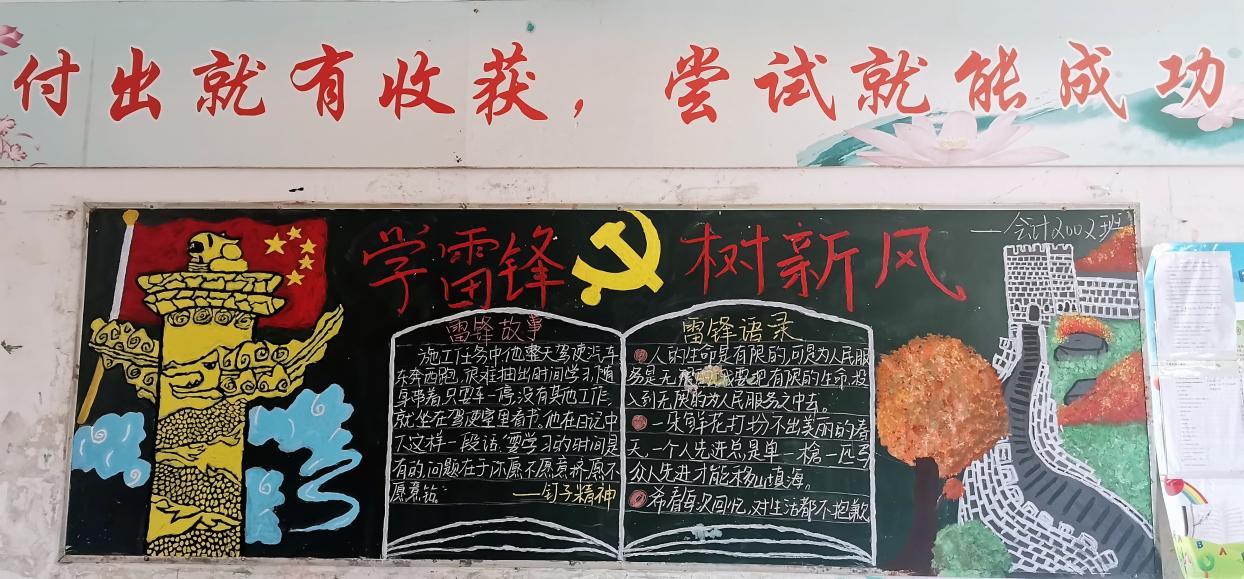 付出就有收获，尝试就能成功
学雷锋 树新风
—会计2002班
雷锋故事
施工任务中他整天驾使汽车
东奔西跑,很难抽出时间学习,随
身带着,只要车一停,没有其他工作
就坐在驾使室里看书,他在日记中
下这样一段话,要学习的时间是
有的,问题在于你愿不愿意挤,愿不
愿意钻。
——钉子精神
雷锋语录
人的生命是有限的,可是为人民服
务是无限的,我要把有限的生命,投
入到无限的为人民服务之中去。
一朵鲜花打扮不出美丽的春
天,一个人先进总是单一枪一匹马
众人先进才能移山填海。
希看每次回忆,对生活都不抱歉